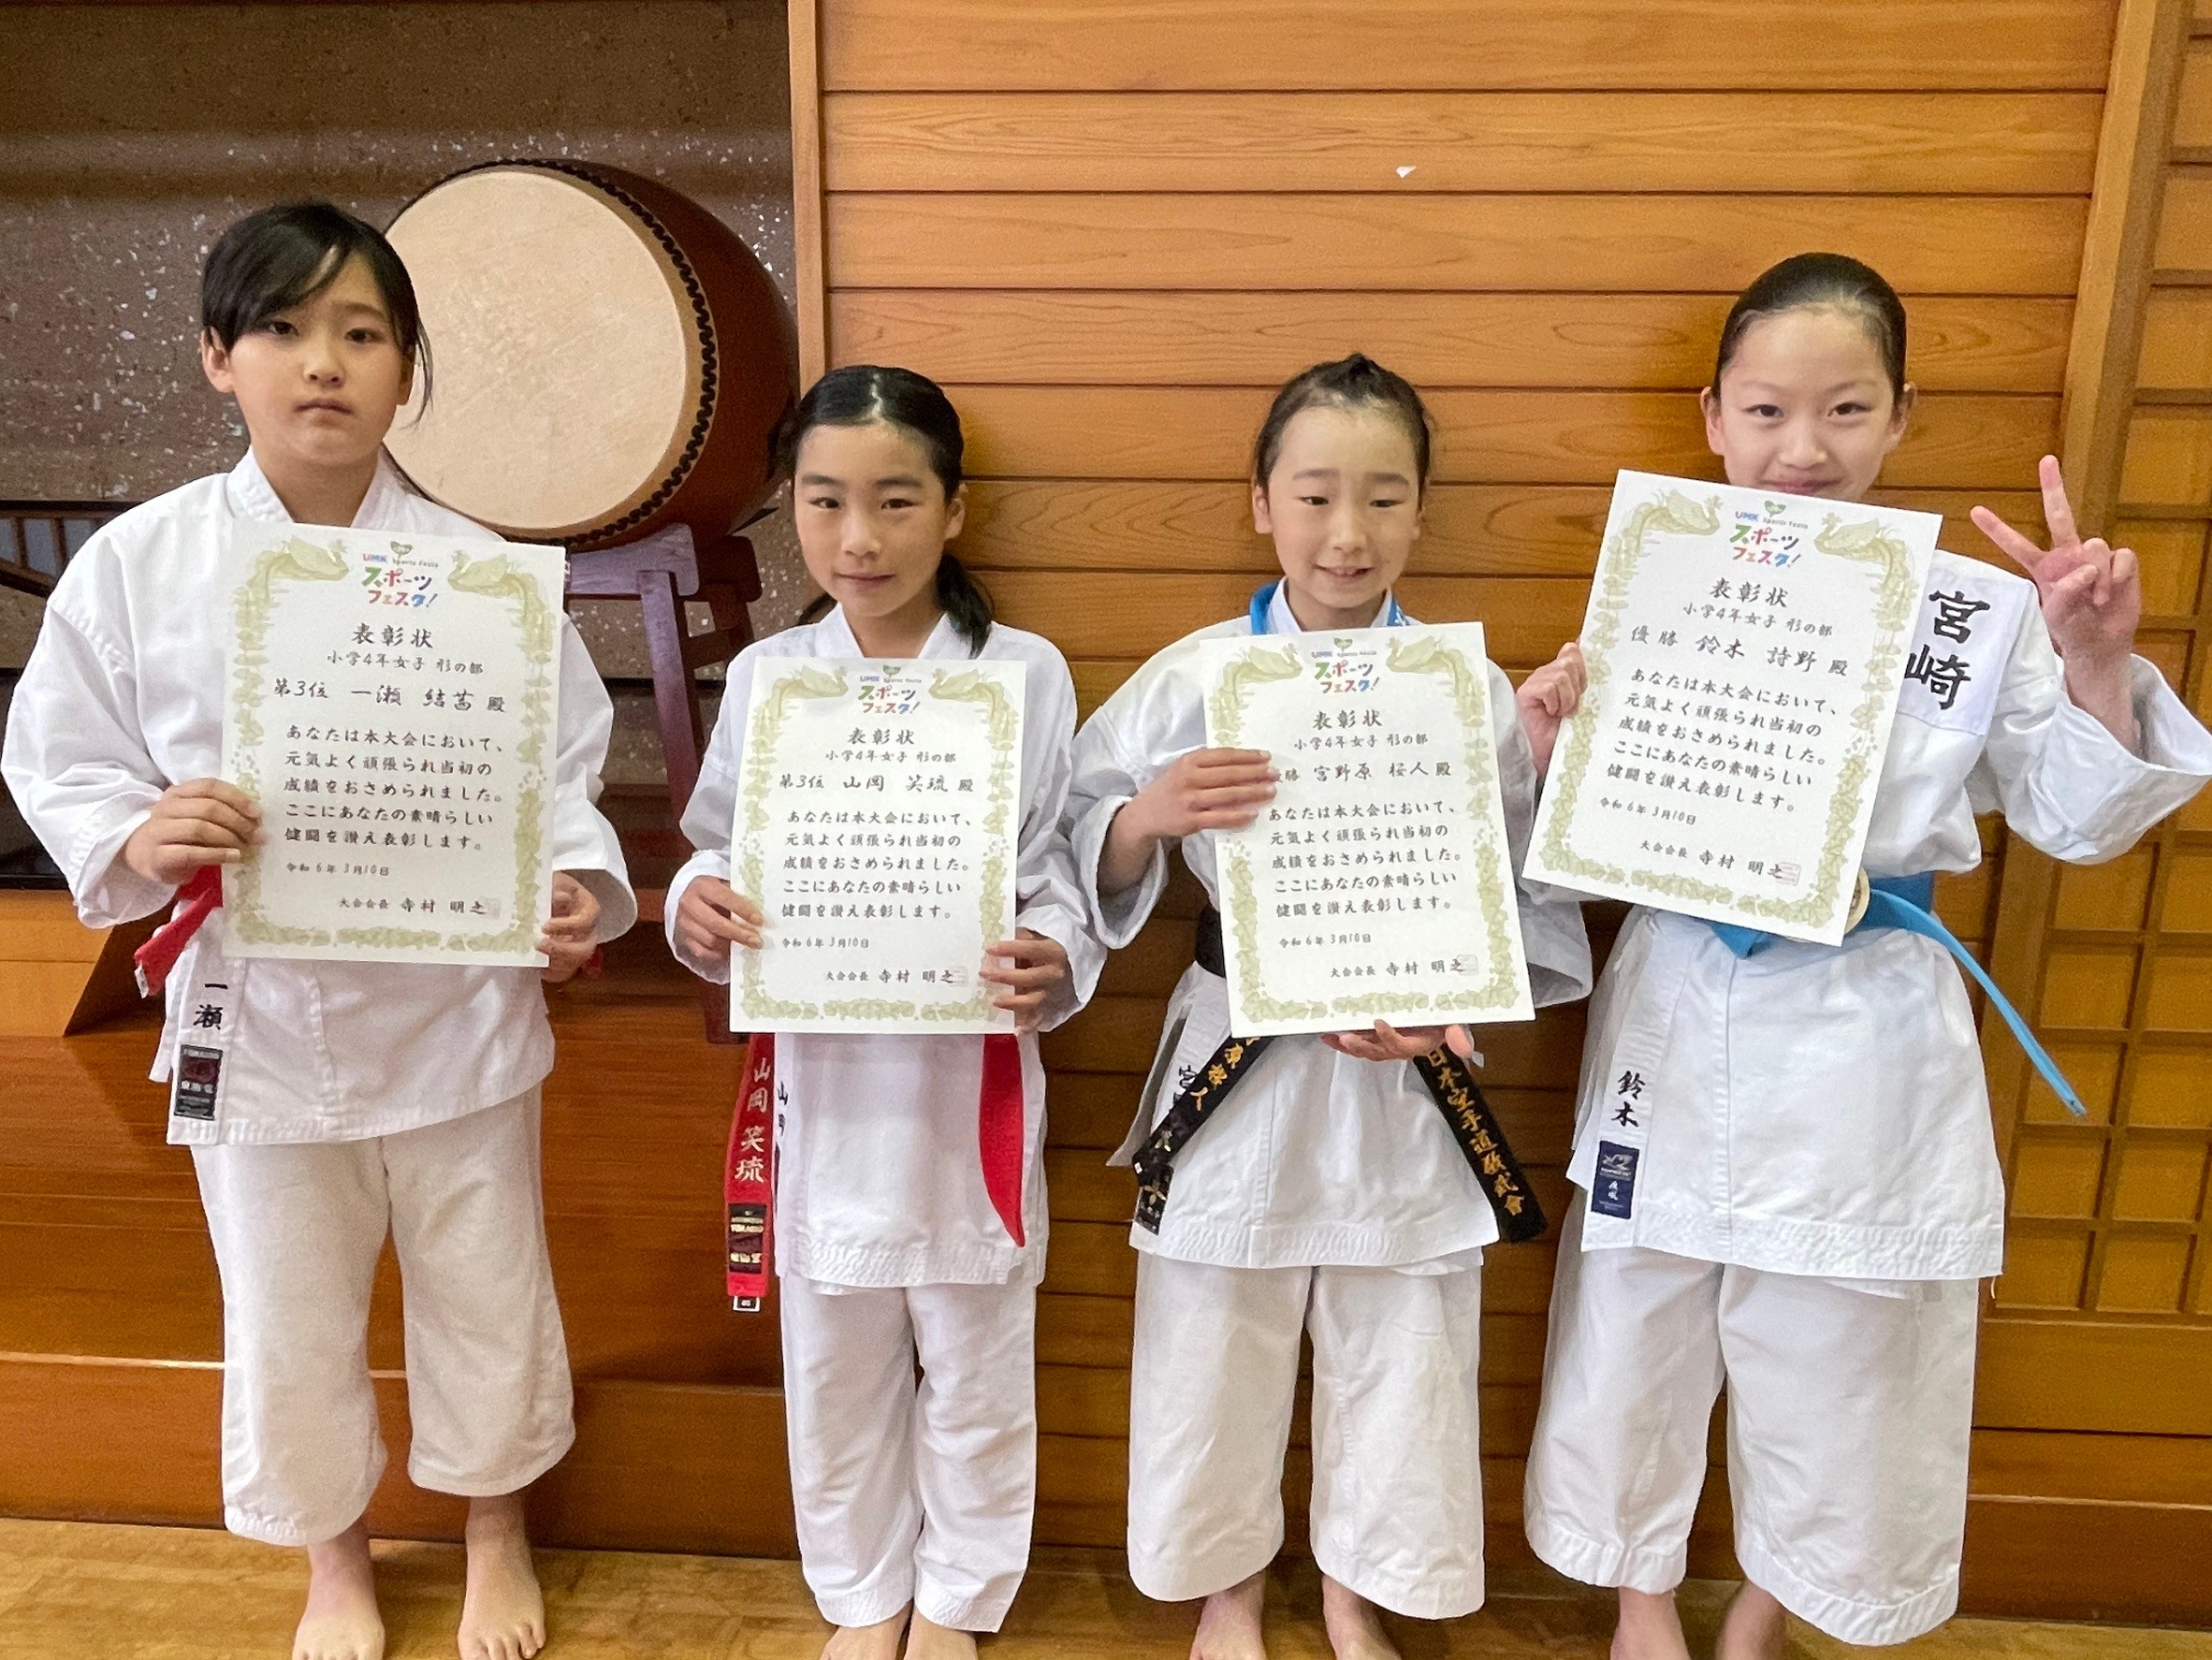 UMK Sports Festa
スポーツ
フェスタ!
表彰状
小学4年女子 形の部
第3位 一瀬 結茜 殿
あなたは本大会において、
元気よく頑張られ当初の
成績をおさめられました。
ここにあなたの素晴らしい
健闘を讃え表彰します。
令和6年3月10日
大会会長 寺村 明之
一瀬
UMK Sports Festa
スポーツ
フェスタ!
表彰状
小学4年女子 形の部
第3位 山岡 笑琉 殿
あなたは本大会において、
元気よく頑張られ当初の
成績をおさめられました。
ここにあなたの素晴らしい
健闘を讃え表彰します。
令和6年3月10日
大会会長 寺村 明之
山岡 笑琉
山岡
UMK Sports Festa
スポーツ
フェスタ!
表彰状
小学4年女子 形の部
勝 宮野原 桜人 殿
あなたは本大会において、
元気よく頑張られ当初の
成績をおさめられました。
ここにあなたの素晴らしい
健闘を讃え表彰します。
令和6年3月10日
大会会長 寺村 明之
宮
桜人
日本空手道敬武會
UMK Sports Festa
スポーツ
フェスタ!
表彰状
小学4年女子 形の部
優勝 鈴木 詩野 殿
あなたは本大会において、
元気よく頑張られ当初の
成績をおさめられました。
ここにあなたの素晴らしい
健闘を讃え表彰します。
令和6年3月10日
大会会長 寺村 明之
宮崎
鈴木